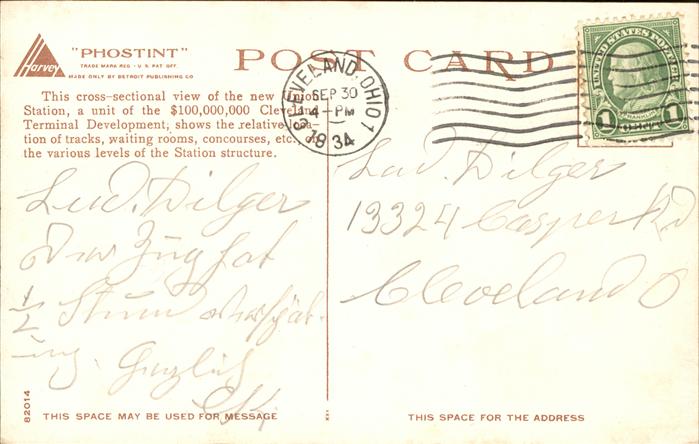 Harvey
"PHOSTINT"
TRADE MARK REG - U.S. PAT. OFF.
MADE ONLY BY DETROIT PUBLISHING CO
POST CARD
UNITED STATES POSTAGE
FRANKLIN
1 1
CLEVELAND, OHIO 1
SEP 30
4-PM
1934
This cross-sectional view of the new Union
Station, a unit of the $100,000,000 Cleveland
Terminal Development, shows the relative
tion of tracks, waiting rooms, concourses, etc.
the various levels of the Station structure.
Lud. Dilger
Der Zug hat
1/2 Stund verspät-
ung.
Lud. Dilger
13324 Casper Rd
Cleveland O
82014
THIS SPACE MAY BE USED FOR MESSAGE
THIS SPACE FOR THE ADDRESS